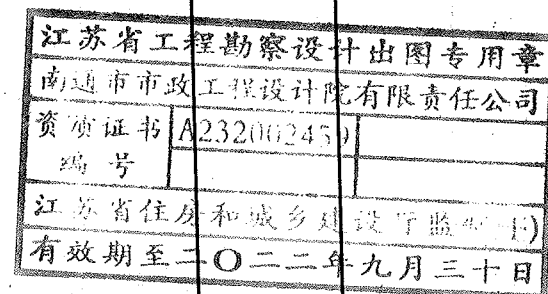 江苏省工程勘察设计出图专用章
南通市市政工程设计院有限责任公司
资质证书
编号
江苏省住房和城乡建设厅监制
有效期至二〇二二年九月三十日